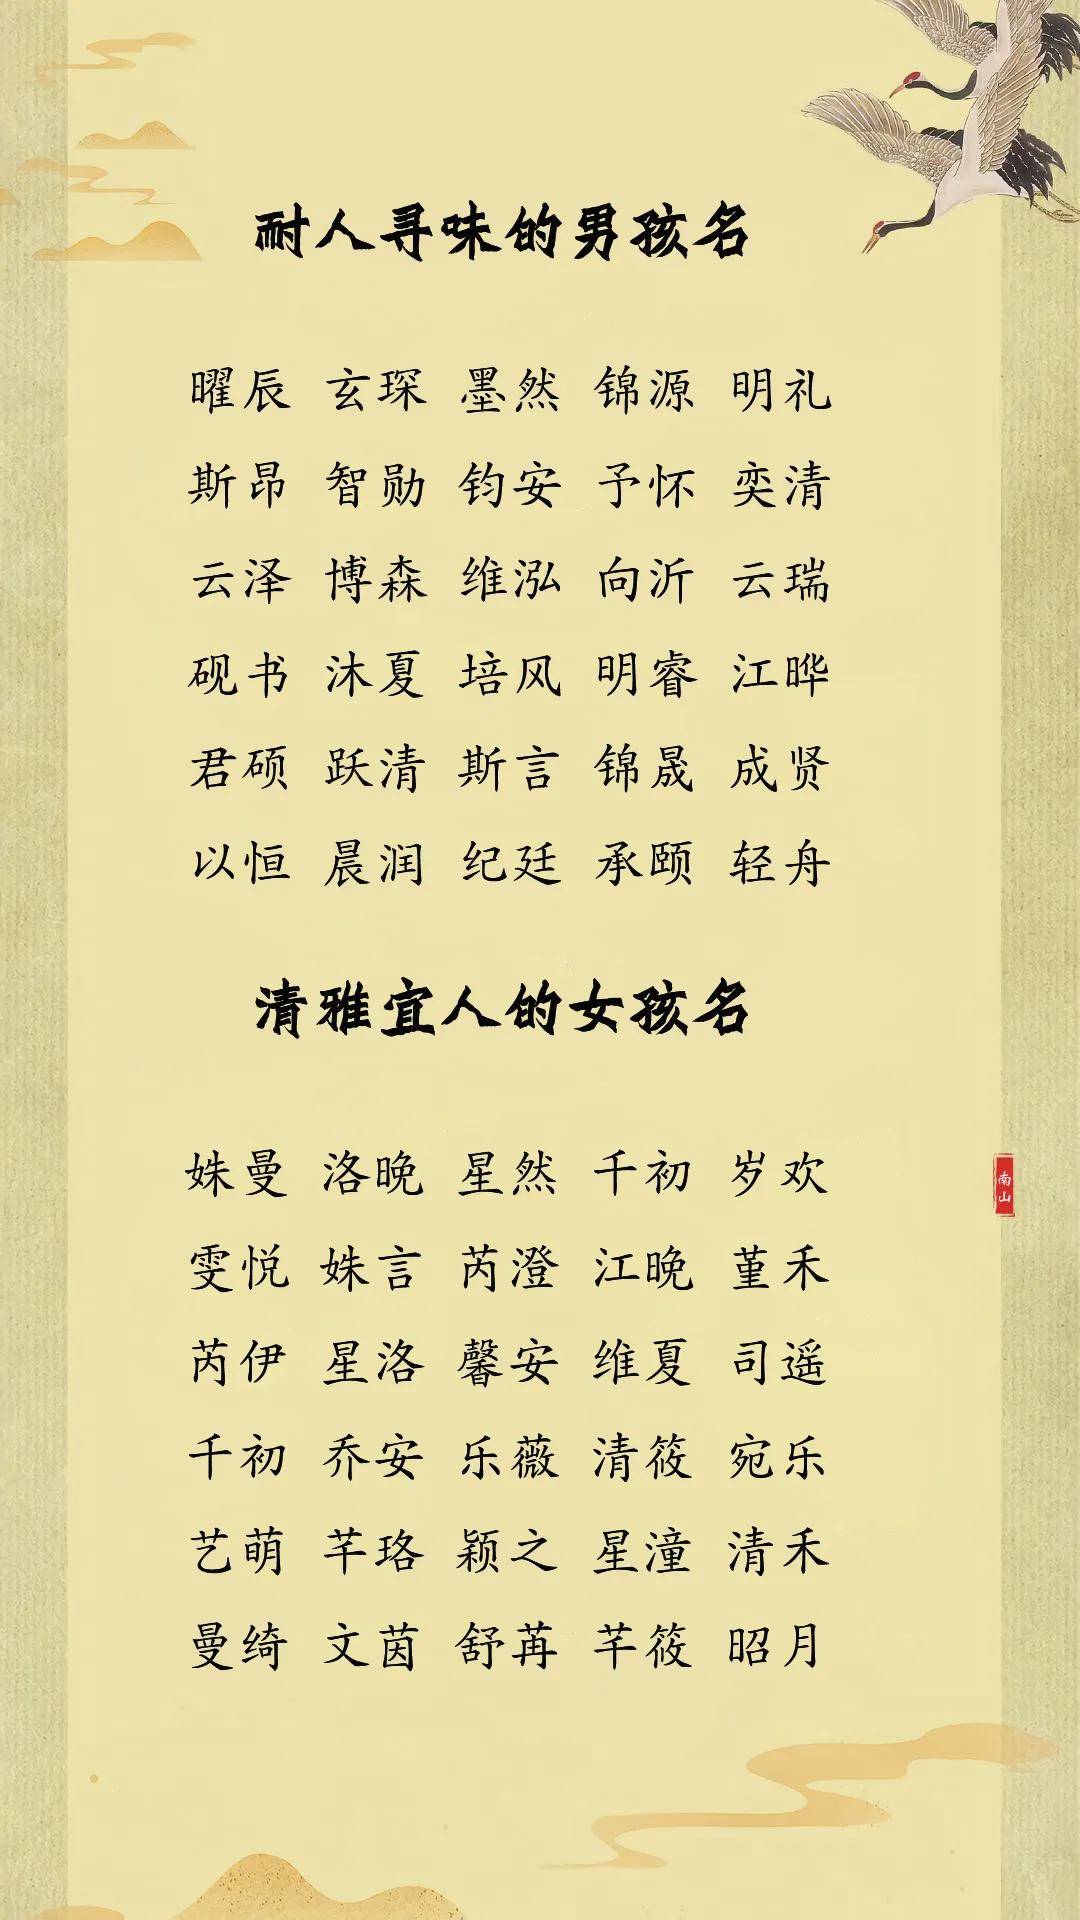 耐人寻味的男孩名
曜辰 玄琛 墨然 锦源 明礼
斯昂 智勋 钧安 予怀 奕清
云泽 博森 维泓 向沂 云瑞
砚书 沐夏 培风 明睿 江晔
君硕 跃清 斯言 锦晟 成贤
以恒 晨润 纪廷 承颐 轻舟
清雅宜人的女孩名
姝曼 洛晚 星然 千初 岁欢
雯悦 姝言 芮澄 江晚 堇禾
芮伊 星洛 馨安 维夏 司遥
千初 乔安 乐薇 清筱 宛乐
艺萌 芊珞 颖之 星潼 清禾
曼绮 文茵 舒苒 芊筱 昭月
南山